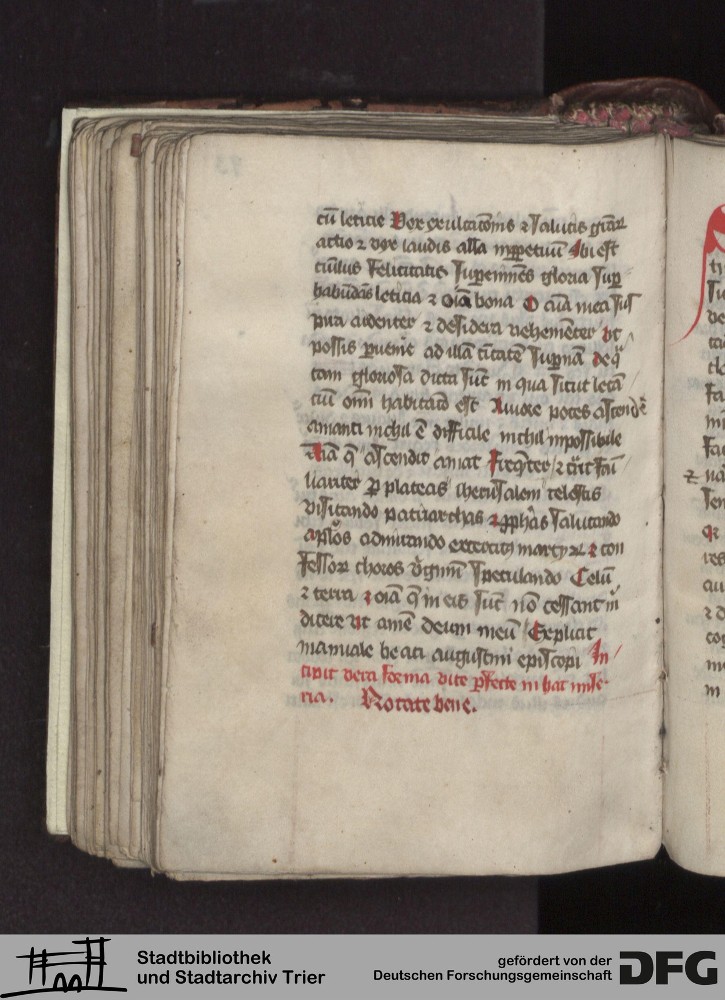 cū leticie Vox exultacōnis ⁊ salutis gr̄aꝝ
actio ⁊ vox laudis alla inꝑpetuū Ibi est
cūulus felicitatis supereminēs gloria suꝑ
habūdās leticia ⁊ oīa bona O aīa mea sus
pira ardenter ⁊ desidera vehemēter vt
possis ꝑuenire ad illā ciuitatē supernā de qͣ
tam gloriosa dicta sūt in qua sicut letā
ciū oīm habitacio est Amore potes ascendeͬ
amanti nichil ē difficile nichil inpossibile
Aīa q̄ ascendit amat frequēter ⁊ currit fami
liariter ꝑ plateas iherusalem celestis
visitando patriarchas ⁊ ꝓph̄as salutando
apl̄os admirando exercitus martyrꝝ ⁊ con
fessorꝝ choros virginum speculando Celū
⁊ terra ⁊ oīa q̄ in eis sūt nō cessant m̄
dicere vt amē deum meū Explicit
manuale beati augustini episcopi In
cipit vera forma vite ꝑfecte in hac mise-
ria. Notate bene.
Stadtbibliothek
und Stadtarchiv Trier
gefördert von der
Deutschen Forschungsgemeinschaft
DFG